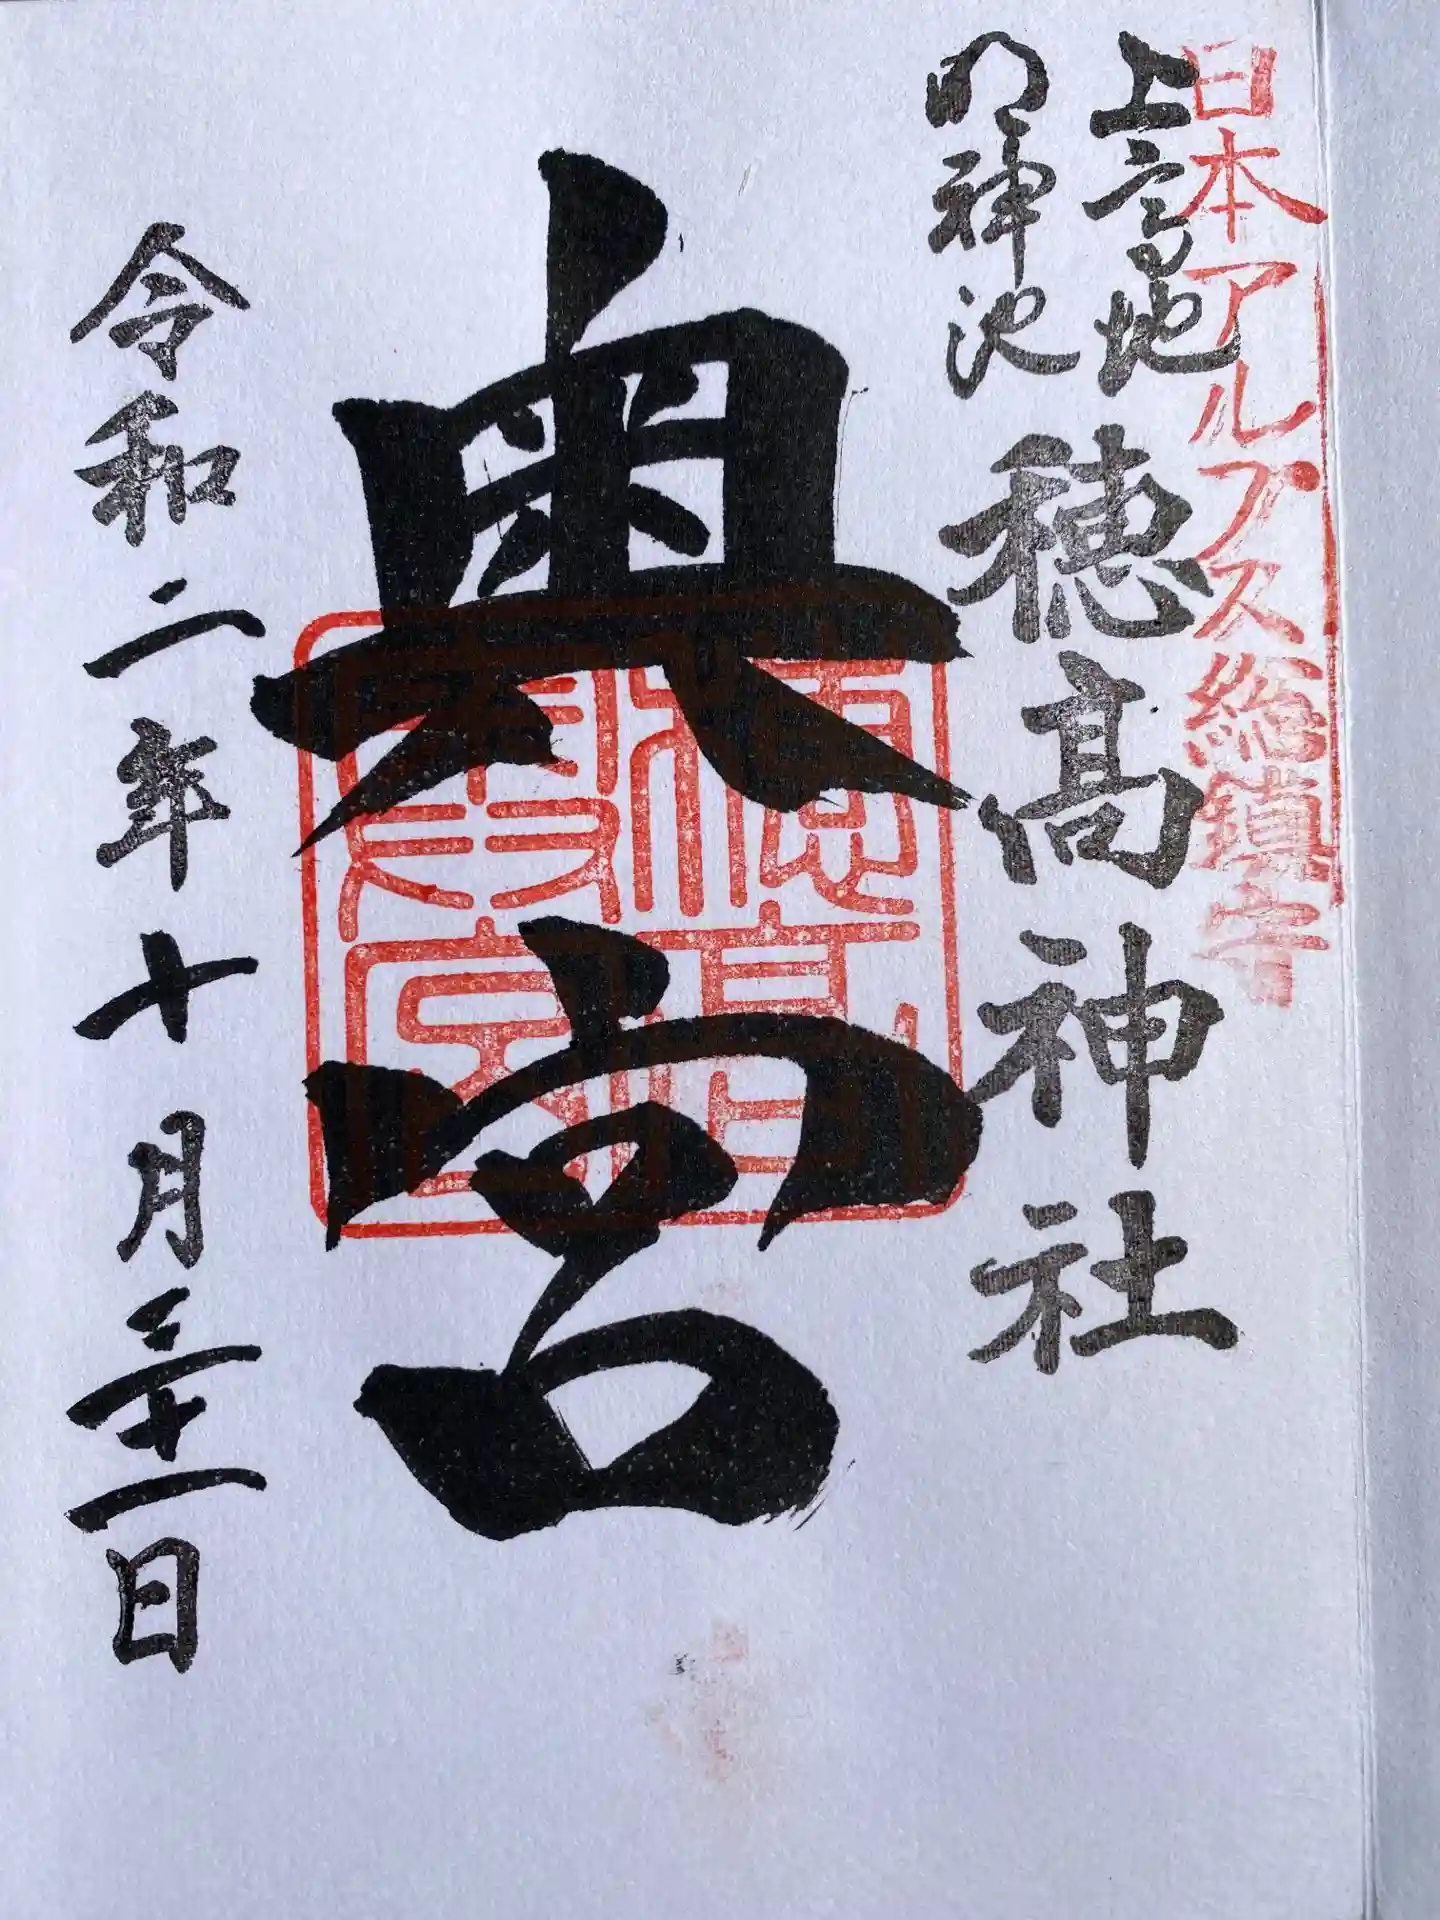 日本アルプス総鎮守
上高地
明神池
穂高神社
奥宮
穂高神社奥宮
令和二年十月三十一日